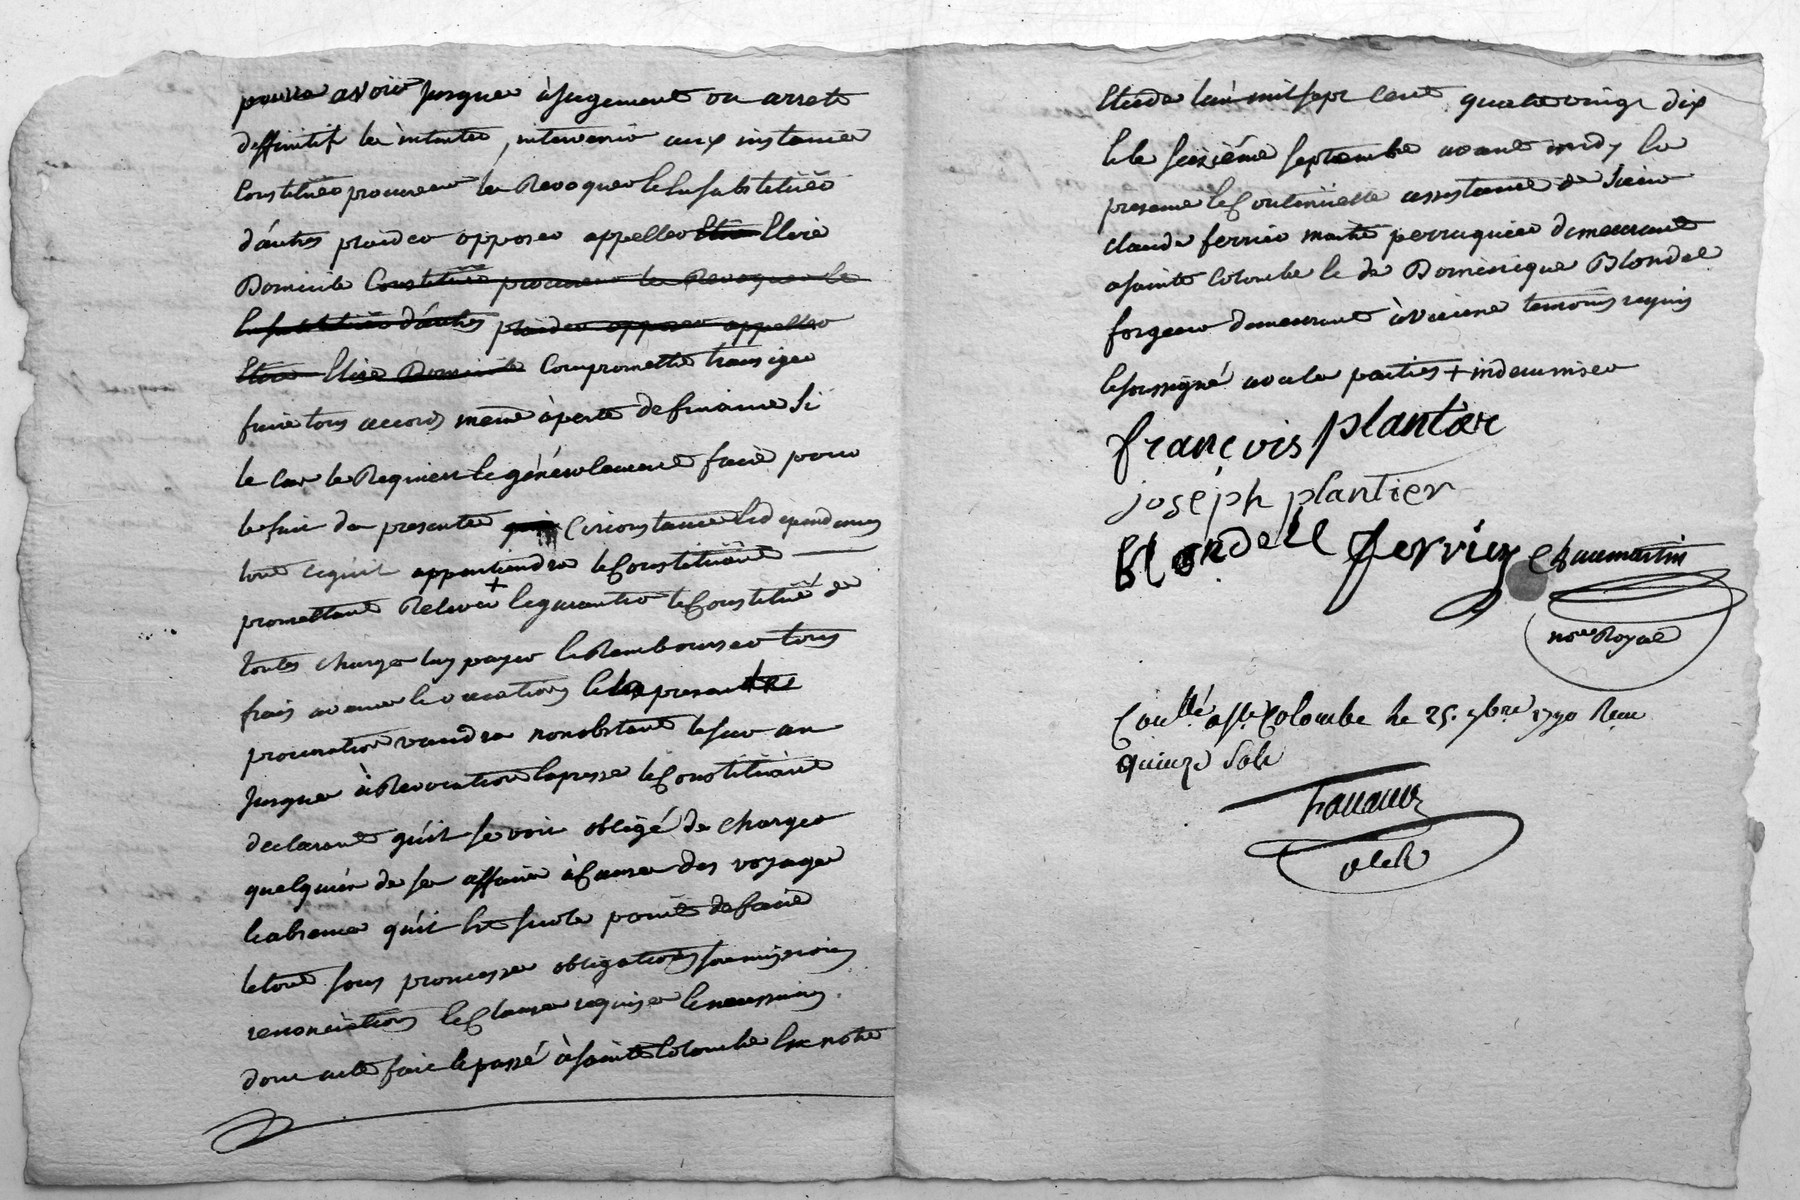 pour avoir jusque à jugement ou arrets
deffinitif les intentés, intervenir aux instances
Constituer procureur les Revoquer et En substituer
d'autres plaider opposer appeller Etre Elire
Domicile Constituer procureur les Revoquer et
En substituer d'autres plaider opposer appeller
Etre Elire Domicile Compromettre transiger
faire tous accords meme à perte de finance Si
le Cas le Requiert Et généralement faire pour
le fait du presente Circonstances Et dépendances
tout ce quil appartiendra le Constituant
promettant Relever + Et garantir le Constitué de
toutes charges luy payer Et Rembourser tous
frais avances Et vacations Et La presente
procuration vaudra nonobstant le sur an
Jusque à Revocation Expresse le Constituant
declarant qu'il se voit obligé de charger
quelqu'un de ses affaires à Cause des voyages
Et absences qu'il Est sur le point de faire
Le tout sous promesses obligations soumissions
renonciations Et Clauses requises Et necessaires.
dont acte fait Et passé à Sainte Colombe En notre
Etude l'an mil sept Cent quatre vingt dix
Et le seizième Septembre avant midy En
presence Et Continuelle assistance de Sieur
claude ferrier maitre perruquier demeurant
a Sainte Colombe Et de Dominique Blondel
forgeur demeurant à vienne temoins requis
Et Soussignés avec les parties + indemniser
françois plantier
joseph plantier
Blondell ferrier Chaumartin
nore Royal
Conllé a Ste Colombe le 25. 7bre 1790 Reçu
quinze Sols